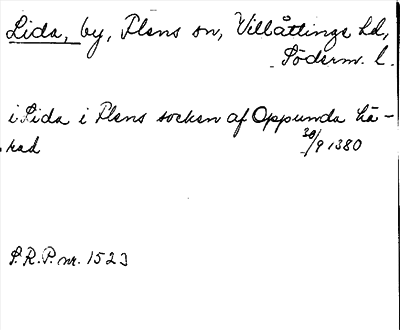 Lida, by, Flens sn, Villåttinge hd,
Söderm. l.
i Lida i Flens socken af Oppunda hä-
rad 30/9 1380
S.R.P. nr. 1523